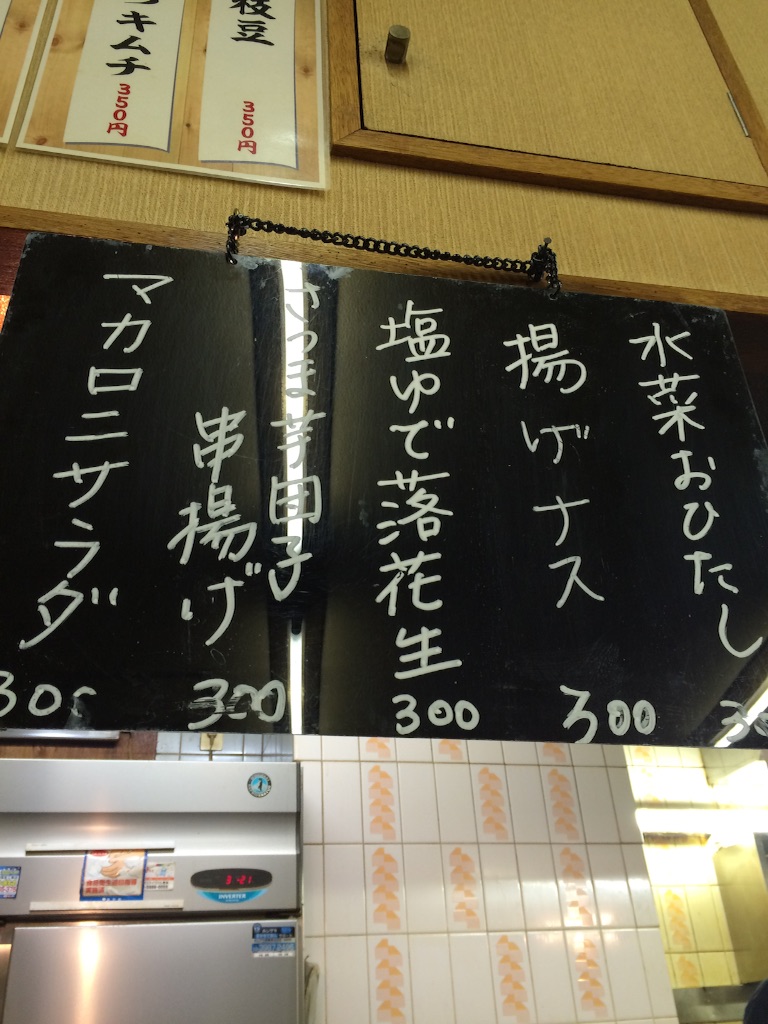 枝豆
350円
キムチ
350円
水菜おひたし
揚げナス
300
塩ゆで落花生
300
さつま芋団子
串揚げ
300
マカロニサラダ
300
3:41
INVERTER